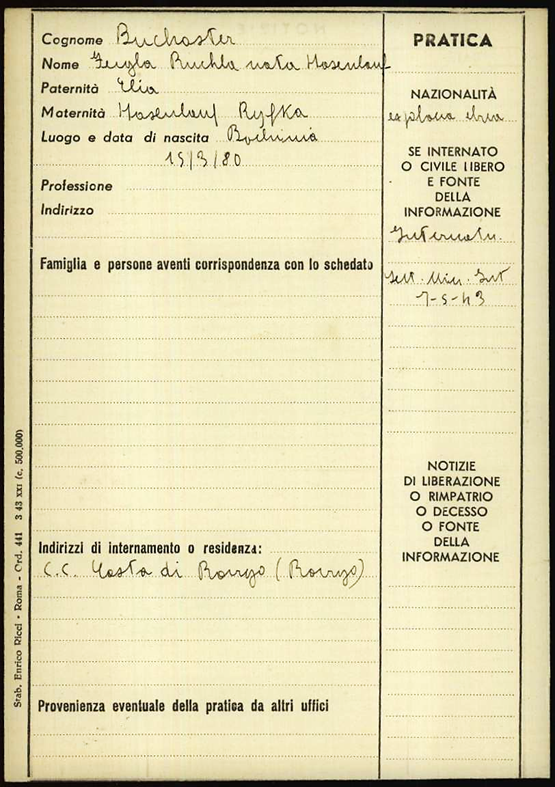 Cognome Buchaster
Nome Feigla Ruchla nata Hasenlauf
Paternità Elia
Maternità Hasenlauf Ryfka
Luogo e data di nascita Bochnia
15/3/80
Professione
Indirizzo
Famiglia e persone aventi corrispondenza con lo schedato
Indirizzi di internamento o residenza:
C.C. Costa di Rovigo (Rovigo)
Provenienza eventuale della pratica da altri uffici
PRATICA
NAZIONALITÀ
ex polacca ebrea
SE INTERNATO
O CIVILE LIBERO
E FONTE
DELLA
INFORMAZIONE
Internata.
Lett. Min. Int
7-5-43
NOTIZIE
DI LIBERAZIONE
O RIMPATRIO
O DECESSO
O FONTE
DELLA
INFORMAZIONE
Stab. Enrico Ricci - Roma - Ord. 441 3 43 XXI (c. 500,000)